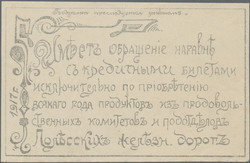 Имѣетъ обращеніе наравнѣ
съ кредитными билетами
исключительно по пріобрѣтенію
всякаго рода продуктовъ изъ продоволь-
ственныхъ комитетовъ и подотдѣловъ
Полѣсскихъ желѣзн. дорогъ